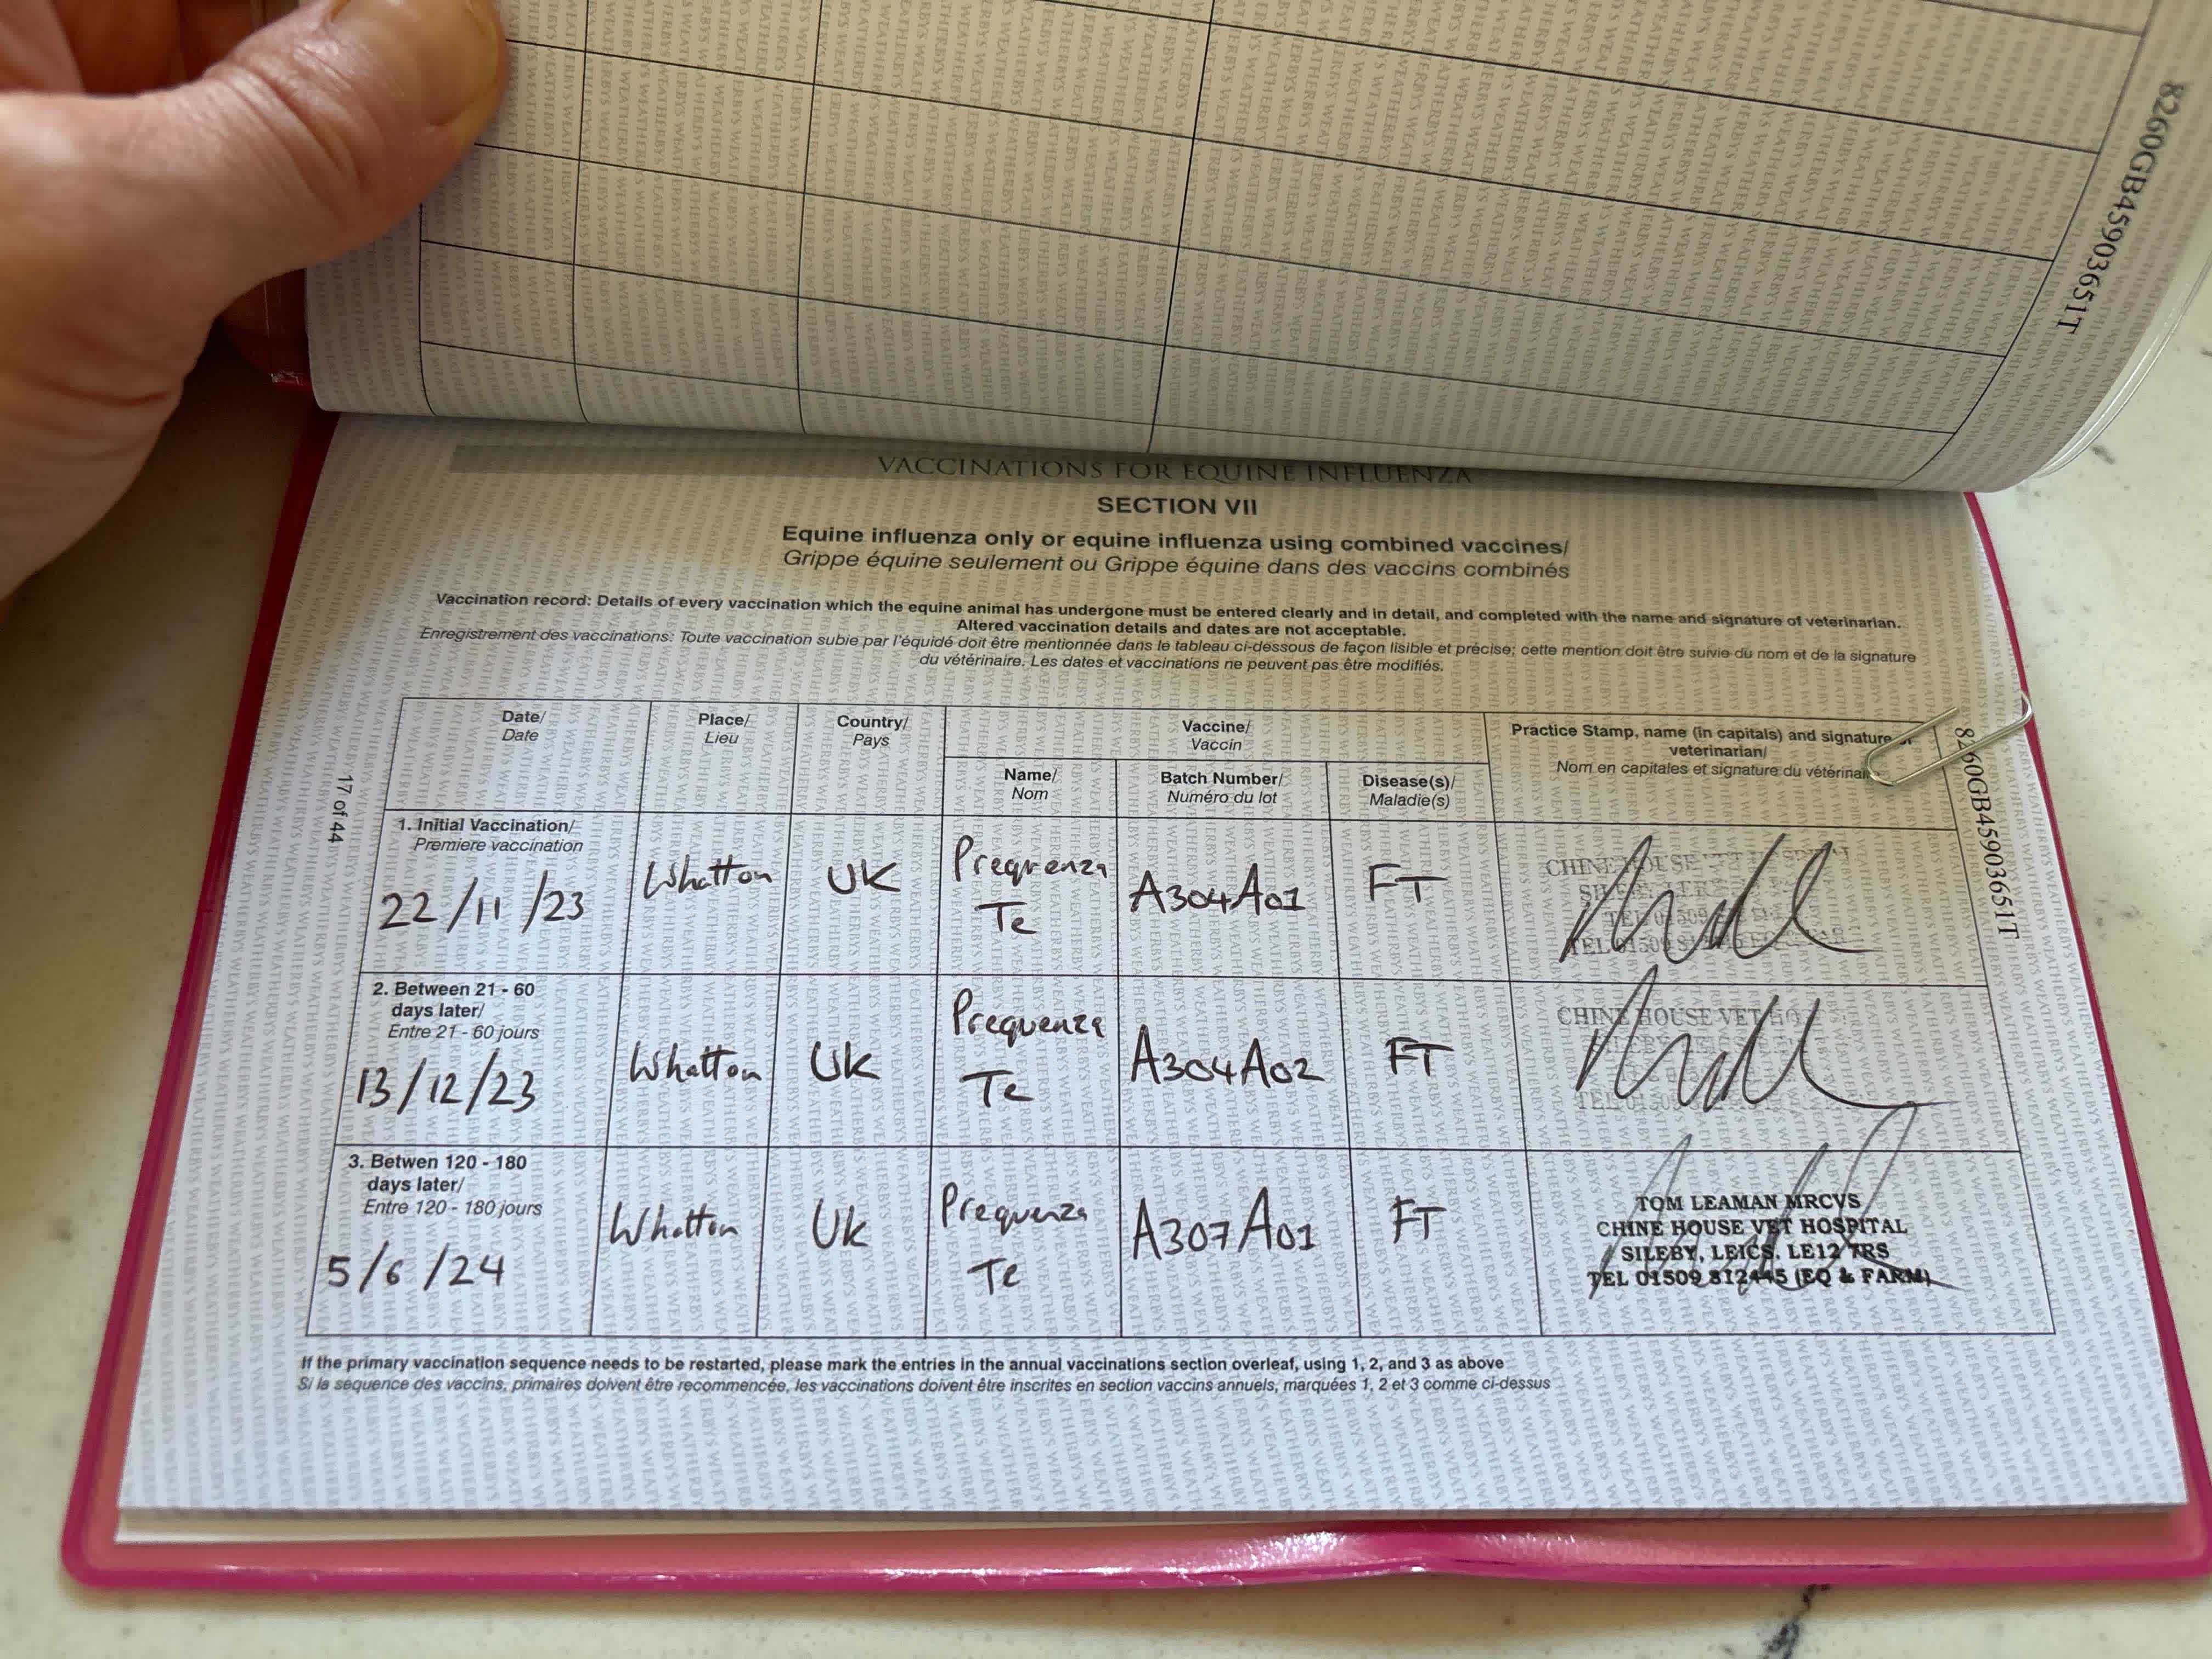 8260GB45903651T
VACCINATIONS FOR EQUINE INFLUENZA
SECTION VII
Equine influenza only or equine influenza using combined vaccines/
Grippe équine seulement ou Grippe équine dans des vaccins combinés
Vaccination record: Details of every vaccination which the equine animal has undergone must be entered clearly and in detail, and completed with the name and signature of veterinarian.
Altered vaccination details and dates are not acceptable.
Enregistrement des vaccinations: Toute vaccination subie par l'équidé doit être mentionnée dans le tableau ci-dessous de façon lisible et précise; cette mention doit être suivie du nom et de la signature
du vétérinaire. Les dates et vaccinations ne peuvent pas être modifiés.
Date/
Date
Place/
Lieu
Country/
Pays
Vaccine/
Vaccin
Name/
Nom
Batch Number/
Numéro du lot
Disease(s)/
Maladie(s)
Practice Stamp, name (in capitals) and signature
veterinarian/
Nom en capitales et signature du
17 of 44
8260GB45903651T
1. Initial Vaccination/
Premiere vaccination
22/11/23
Whatton
UK
Prequenza
Te
A304A01
FT
CHINE HOUSE VET
TEL 01509
2. Between 21 - 60
days later/
Entre 21 - 60 jours
13/12/23
Whatton
UK
Prequenza
Te
A304A02
FT
CHINE HOUSE VET
TEL 01509
3. Betwen 120 - 180
days later/
Entre 120 - 180 jours
5/6/24
Whatton
UK
Prequenza
Te
A307A01
FT
TOM LEAMAN MRCVS
CHINE HOUSE VET HOSPITAL
SILEBY, LEICS. LE12 7RS
TEL 01509 812445 (EQ & FARM)
If the primary vaccination sequence needs to be restarted, please mark the entries in the annual vaccinations section overleaf, using 1, 2, and 3 as above
Si la séquence des vaccins, primaires doivent être recommencée, les vaccinations doivent être inscrites en section vaccins annuels, marquées 1, 2 et 3 comme ci-dessus